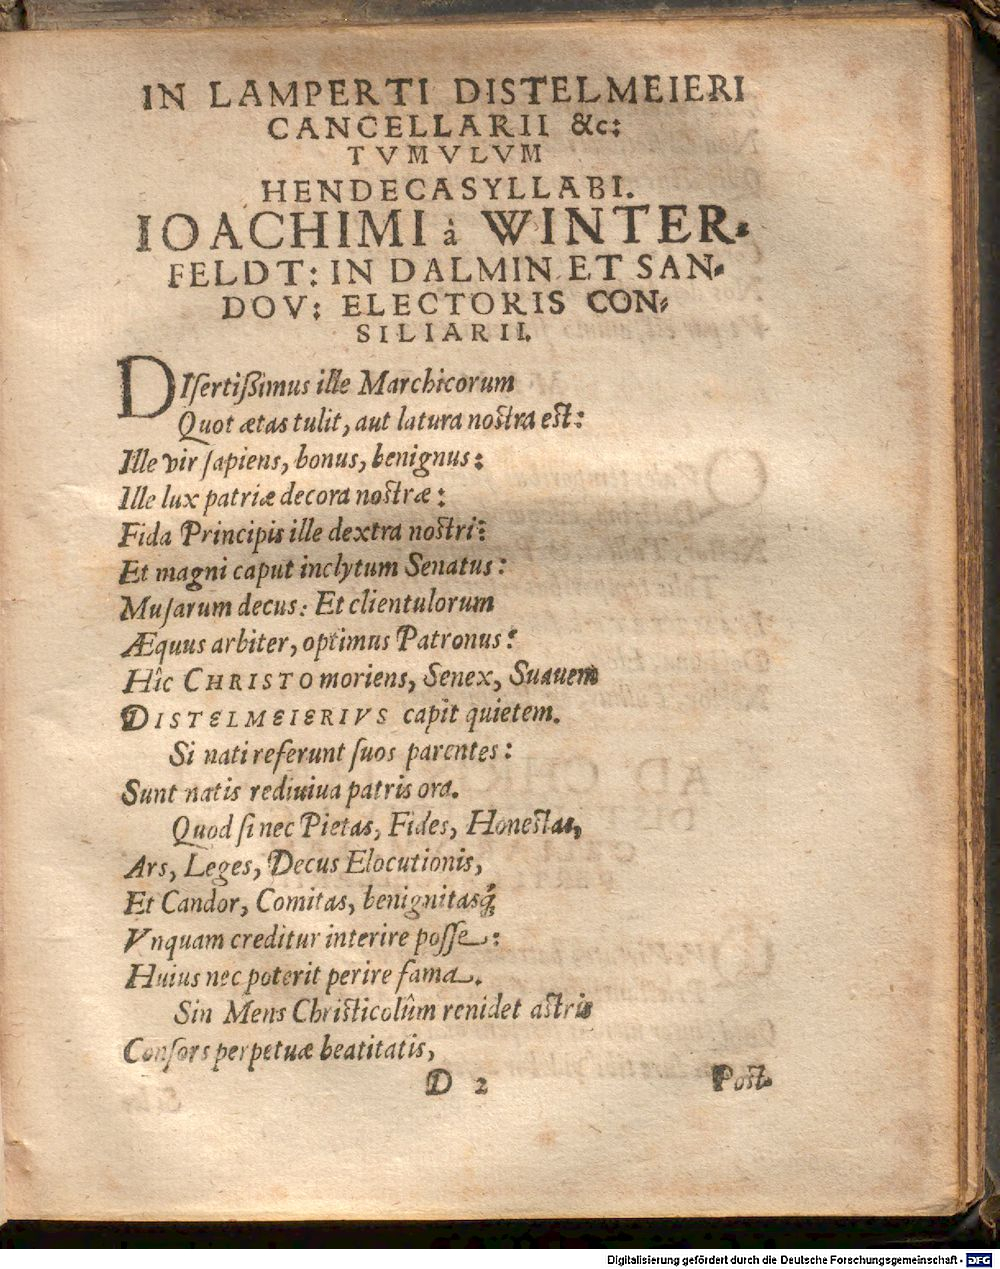 IN LAMPERTI DISTELMEIERI
CANCELLARII &c:
TVMVLVM
HENDECASYLLABI.
IOACHIMI à WINTER-
FELDT: IN DALMIN ET SAN-
DOV: ELECTORIS CON-
SILIARII.
DIſertiſsimus ille Marchicorum
Quot ætas tulit, aut latura nostra est:
Ille vir ſapiens, bonus, benignus:
Ille lux patriæ decora nostræ:
Fida Principis ille dextra nostri:
Et magni caput inclytum Senatus:
Muſarum decus: Et clientulorum
Æquus arbiter, optimus Patronus:
Hîc CHRISTO moriens, Senex, Suauem
DISTELMEIERIVS capit quietem.
Si nati referunt ſuos parentes:
Sunt natis rediuiua patris ora.
Quod ſi nec Pietas, Fides, Honestas,
Ars, Leges, Decus Elocutionis,
Et Candor, Comitas, benignitasq́;
Vnquam creditur interire poſſe:
Huius nec poterit perire fama.
Sin Mens Christicolûm renidet astris
Conſors perpetuæ beatitatis,
D 2 Post
Digitalisierung gefördert durch die Deutsche Forschungsgemeinschaft - DFG